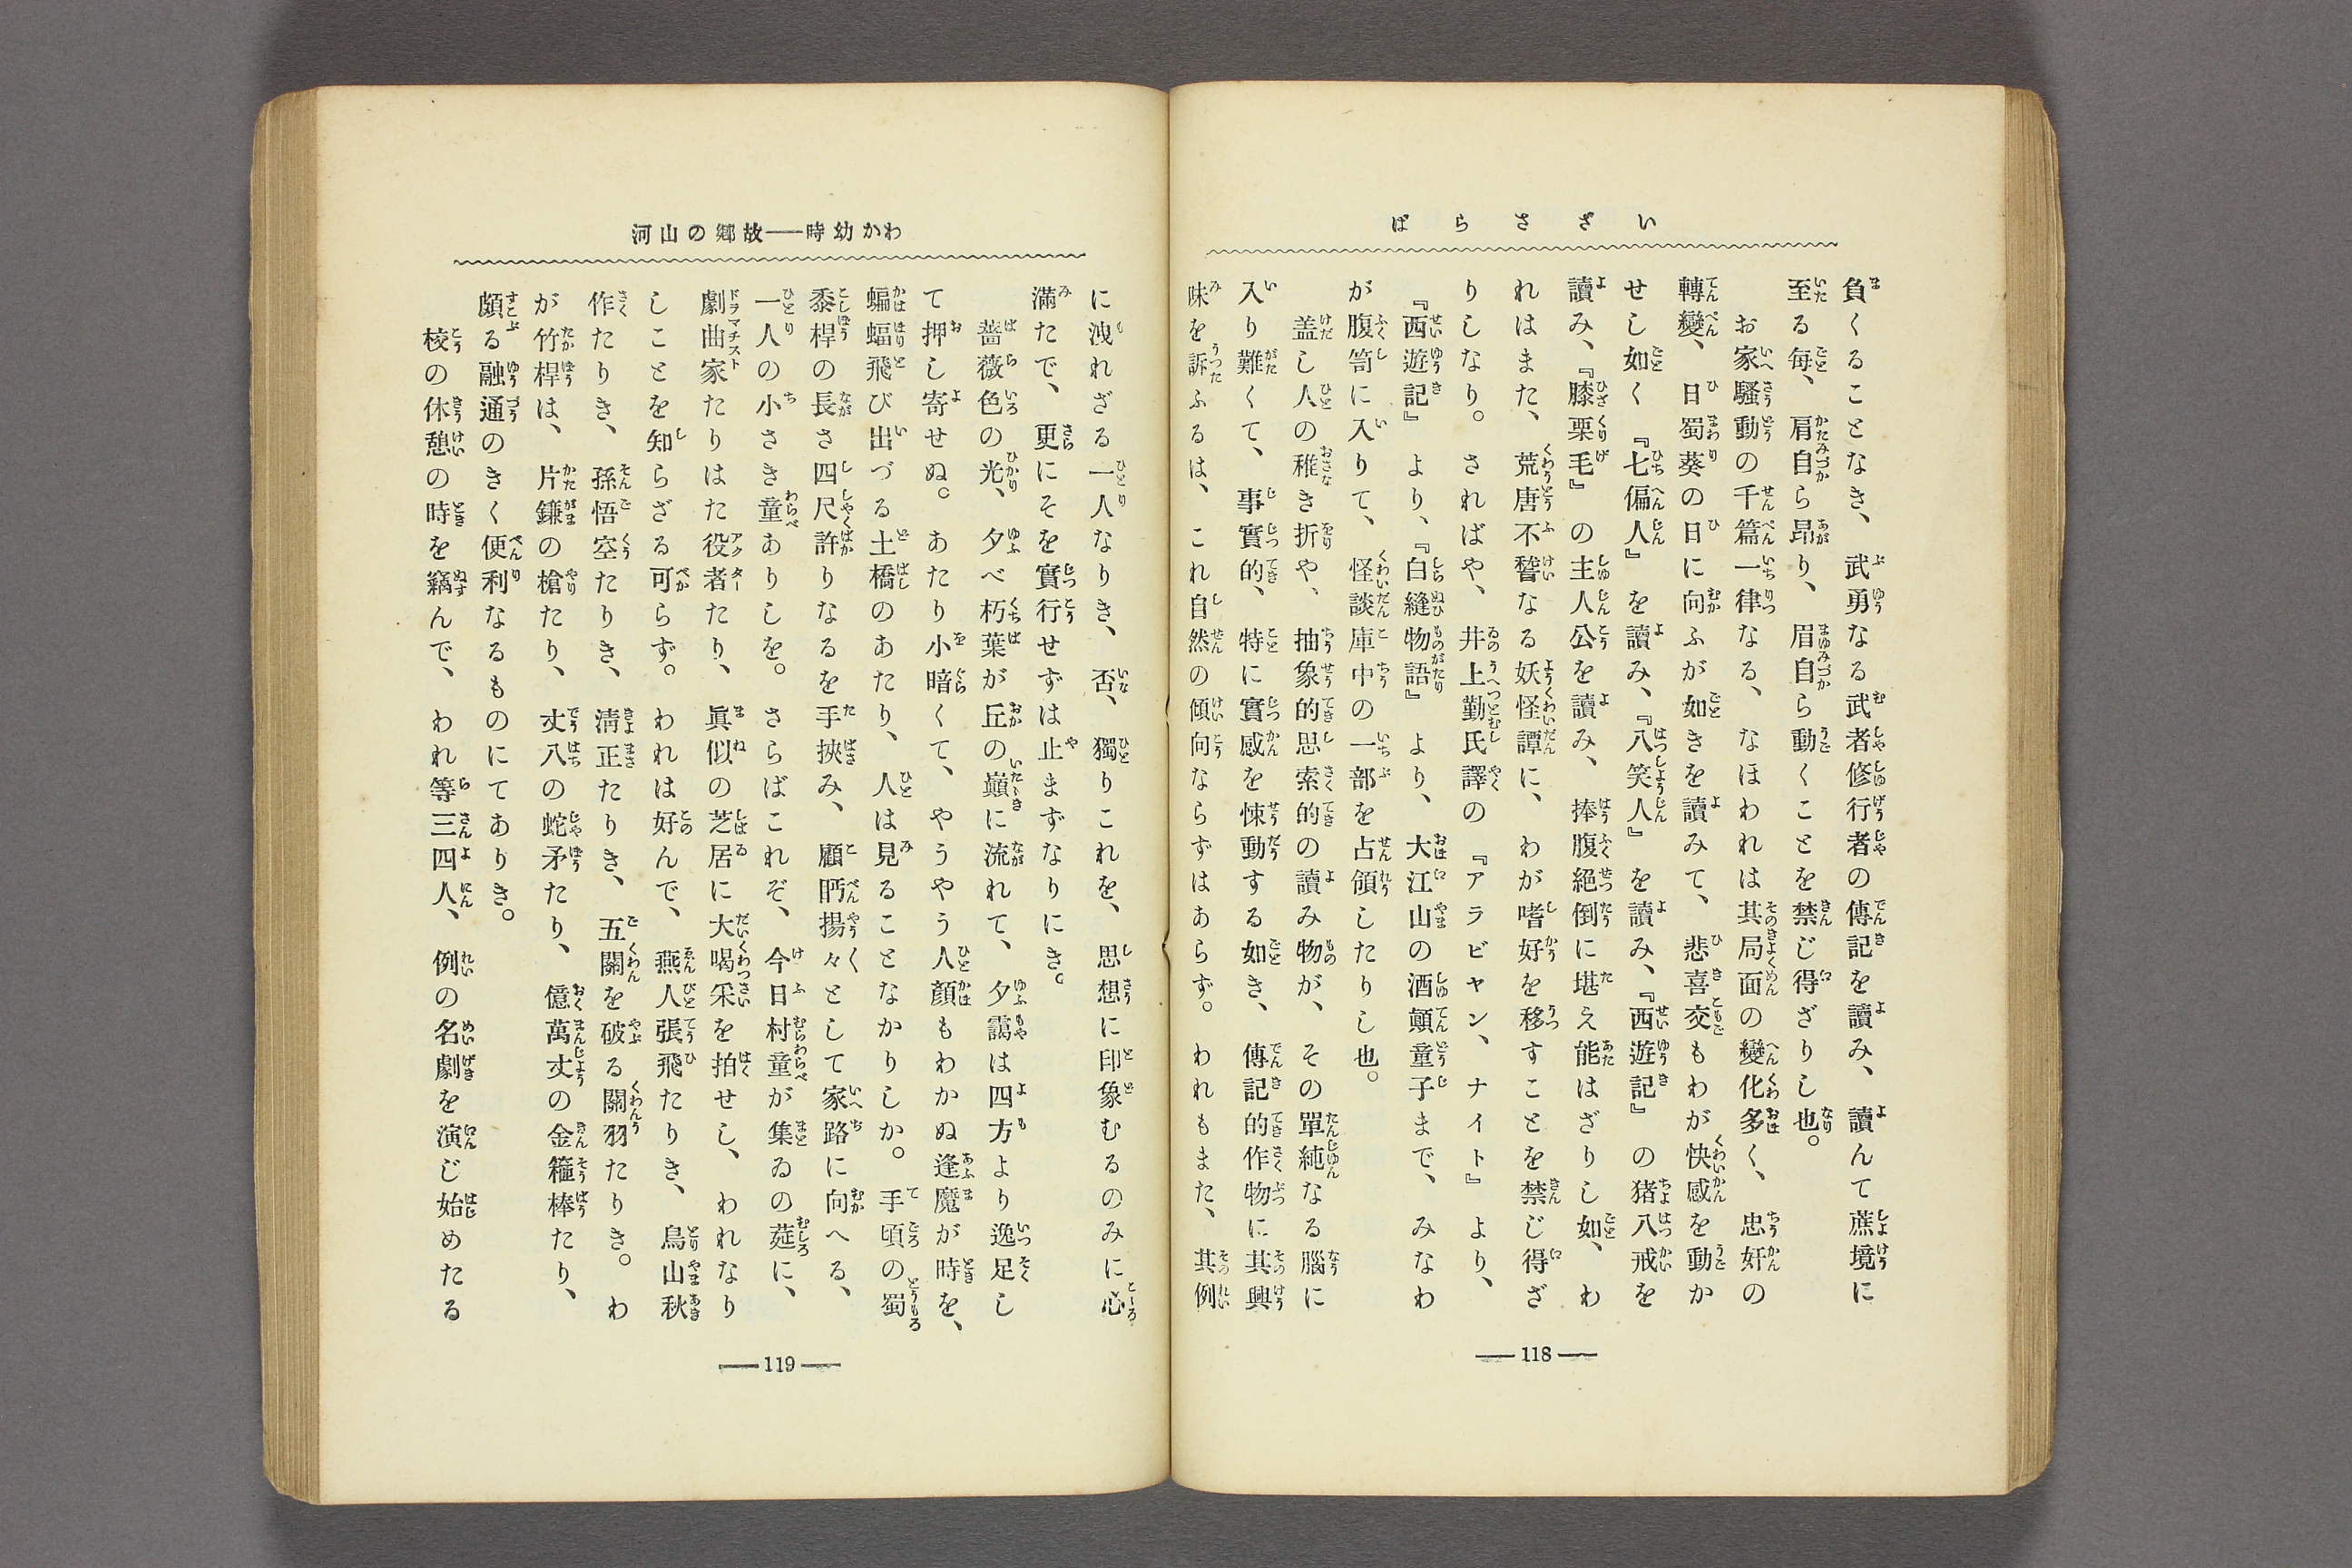 いざさらば
負くることなき、武勇なる武者修行者の傳記を讀み、讀んで蔗境に
至る毎、肩自ら昂り、眉自ら動くことを禁じ得ざりし也。
お家騷動の千篇一律なる、なほわれは其局面の變化多く、忠奸の
轉變、日蜀葵の日に向ふが如きを讀みて、悲喜交もわが快感を動か
せし如く『七偏人』を讀み、『八笑人』を讀み、『西遊記』の猪八戒を
讀み、『膝栗毛』の主人公を讀み、捧腹絕倒に堪え能はざりし如、わ
れはまた、荒唐不諬なる妖怪譚に、わが嗜好を移すことを禁じ得ざ
りしなり。さればや、井上勤氏譯の『アラビヤン、ナイト』より、
『西遊記』より、『白縫物語』より、大江山の酒顛童子まで、みなわ
が腹笥に入りて、怪談庫中の一部を占領したりし也。
盖し人の稚き折や、抽象的思索的の讀み物が、その單純なる腦に
入り難くて、事實的、特に實感を悚動する如き、傳記的作物に其興
味を訴ふるは、これ自然の傾向ならずはあらず。われもまた、其例
118
わが幼時――故鄕の山河
に洩れざる一人なりき、否、獨りこれを、思想に印象むるのみに心
滿たで、更にそを實行せずは止まずなりにき。
薔薇色の光、夕べ朽葉が丘の巓に流れて、夕靄は四方より逸足し
て押し寄せぬ。あたり小暗くて、やうやう人顏もわかぬ逢魔が時を、
蝙蝠飛び出づる土橋のあたり、人は見ることなかりしか。手頃の蜀
黍桿の長さ四尺許りなるを手挾み、顧眄揚々として家路に向へる、
一人の小さき童ありしを。さらばこれぞ、今日村童が集ゐの莚に、
劇曲家たりはた役者たり、眞似の芝居に大喝采を拍せし、われなり
しことを知らざる可らず。われは好んで、燕人張飛たりき、鳥山秋
作たりき、孫悟空たりき、淸正たりき、五關を破る關羽たりき。わ
が竹桿は、片鎌の槍たり、丈八の蛇矛たり、億萬丈の金箍棒たり、
頗る融通のきく便利なるものにてありき。
校の休憩の時を竊んで、われ等三四人、例の名劇を演じ始めたる
119